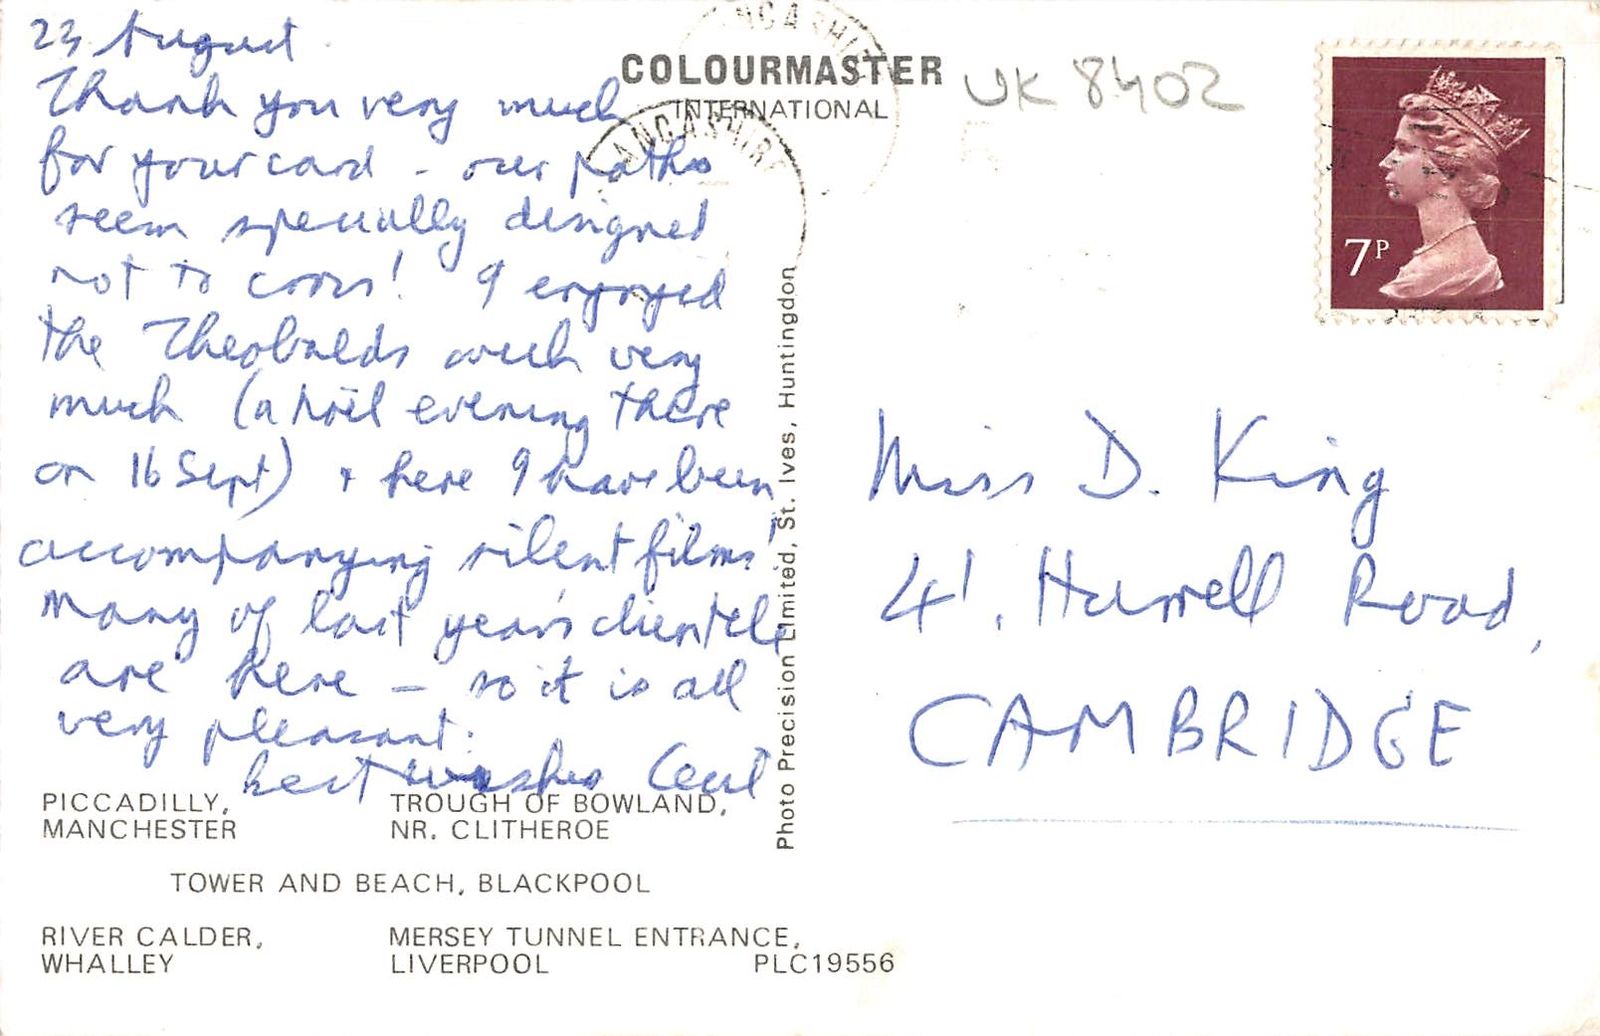 23 August.
Thank you very much
for your card - our paths
seem specially designed
not to cross! I enjoyed
the Theobalds week very
much (a Noël evening there
on 16 Sept) + here I have been
accompanying silent films!
Many of last year's clientele
are here - so it is all
very pleasant.
best wishes Cecil
COLOURMASTER
INTERNATIONAL
LANCASHIRE
LANCASHIRE
UK 8402
7P
Miss D. King
41. Hurrell Road,
CAMBRIDGE
Photo Precision Limited, St. Ives, Huntingdon
PICCADILLY,
MANCHESTER
TROUGH OF BOWLAND,
NR. CLITHEROE
TOWER AND BEACH, BLACKPOOL
RIVER CALDER,
WHALLEY
MERSEY TUNNEL ENTRANCE,
LIVERPOOL
PLC19556